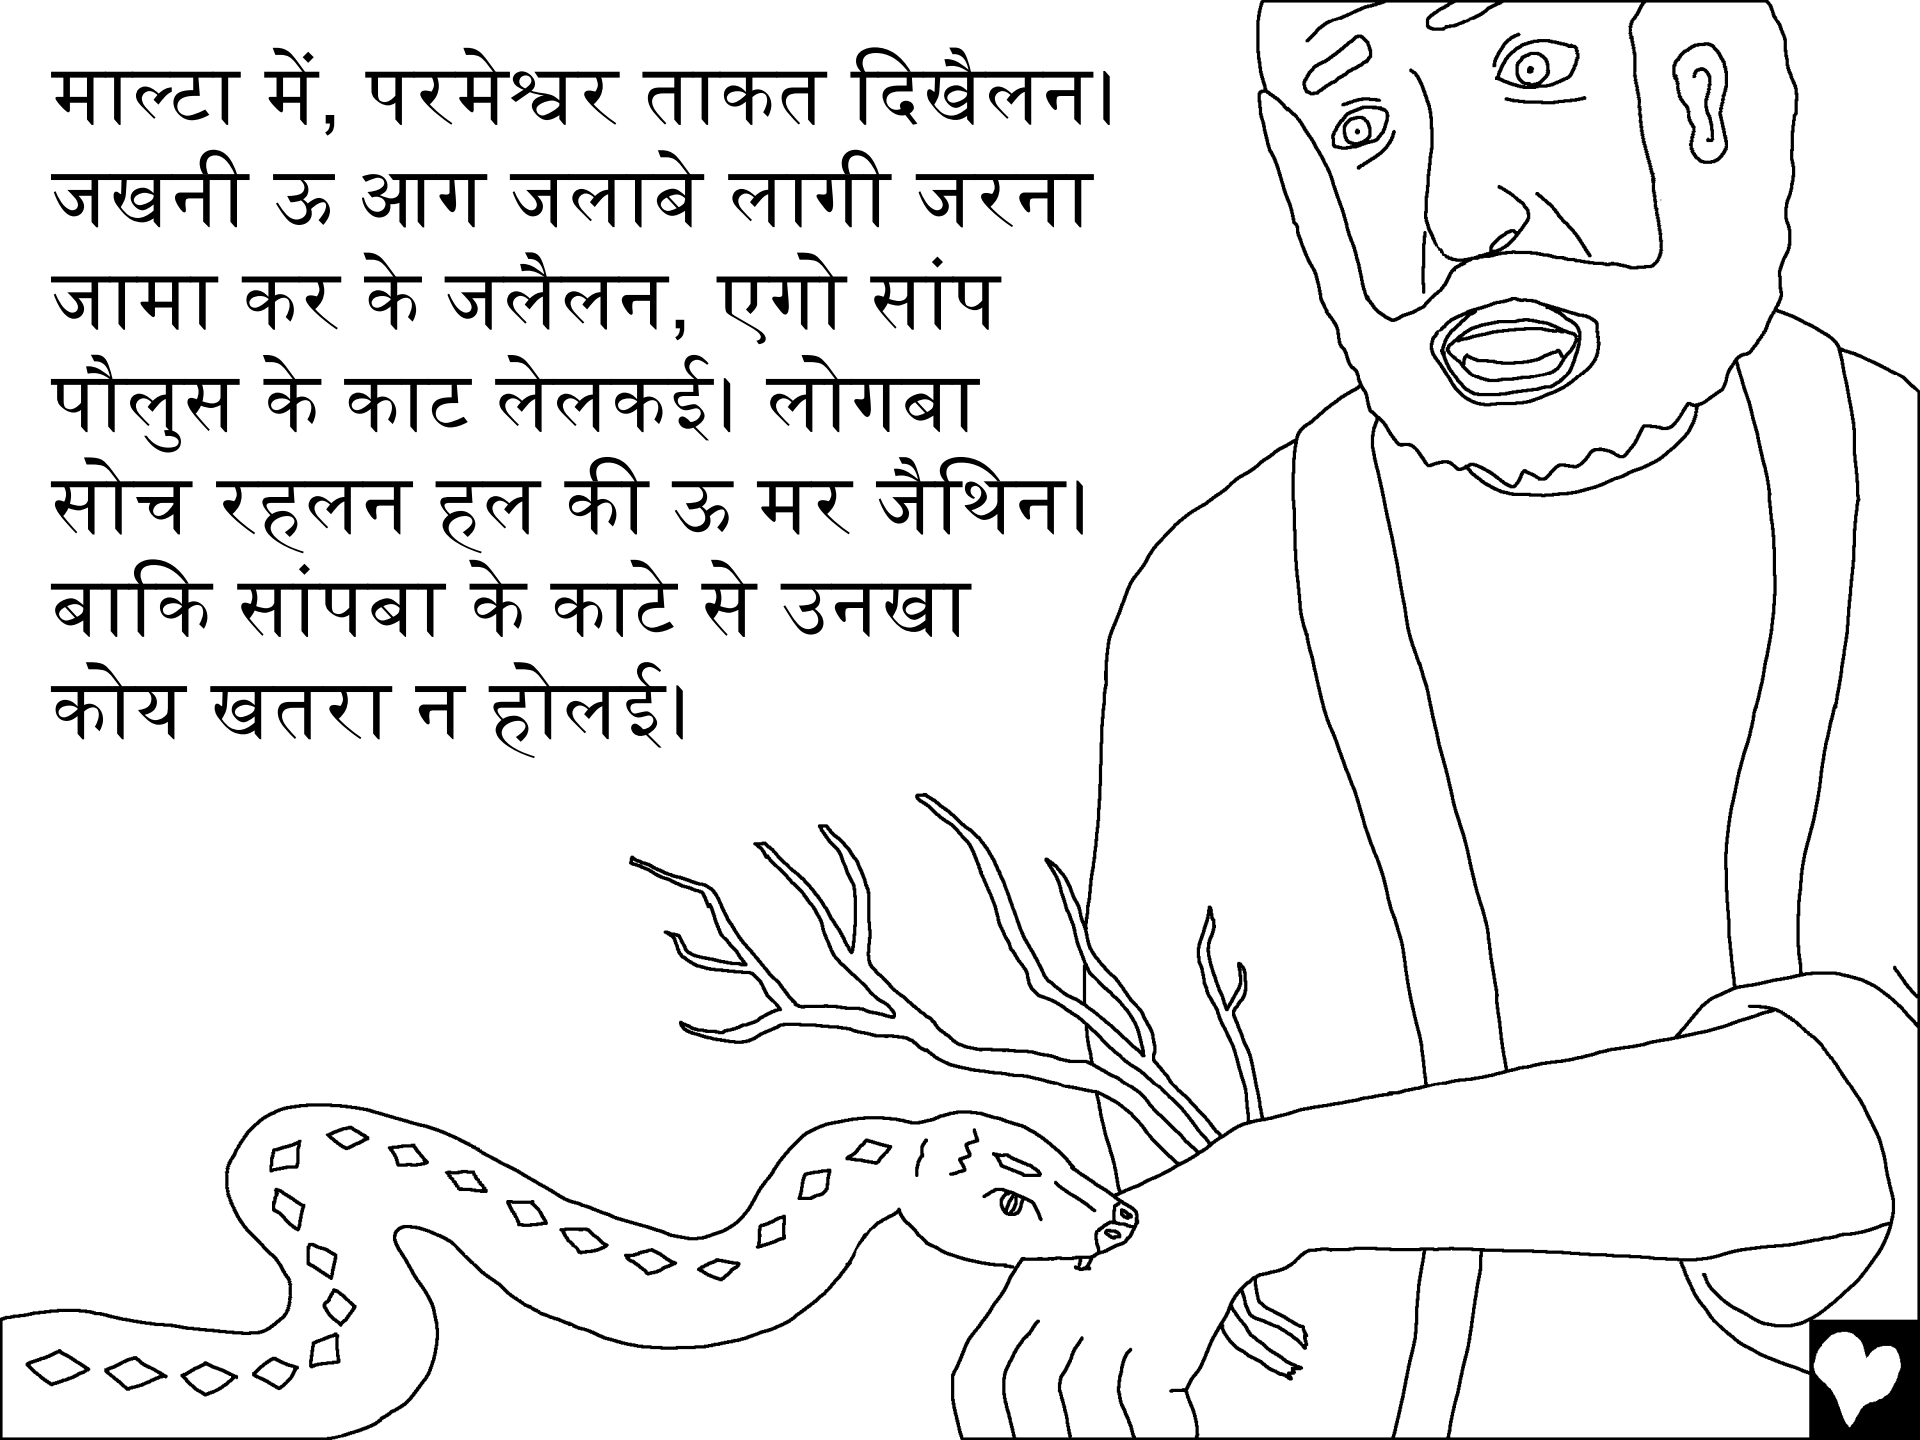 माल्टा में, परमेश्वर ताकत दिखैलन।
जखनी ऊ आग जलाबे लागी जरना
जामा कर के जलैलन, एगो सांप
पौलुस के काट लेलकई। लोगबा
सोच रहलन हल की ऊ मर जैथिन।
बाकि सांपबा के काटे से उनखा
कोय खतरा न होलई।